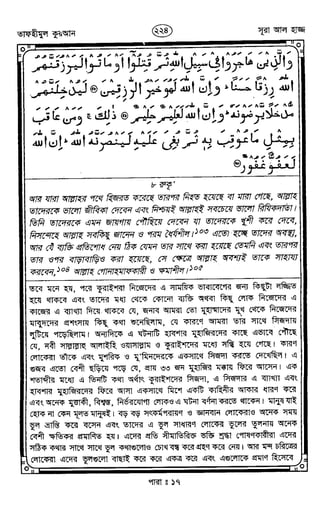 তাফহীমুল কুরআন
২২৪
সূরা আল হাজ্জ
وَالَّذِينَ هَاجَرُوا فِي سَبِيلِ اللهِ ثُمَّ قُتِلُوا أَوْ مَاتُوا لَيَرْزُقَنَّهُمُ
اللهُ رِزْقًا حَسَنًا وَإِنَّ اللهَ لَهُوَ خَيْرُ الرَّازِقِينَ لَيُدْخِلَنَّهُمْ
مُدْخَلًا يَرْضَوْنَهُ وَإِنَّ اللهَ لَعَلِيمٌ حَلِيمٌ ذَٰلِكَ وَمَنْ عَاقَبَ
بِمِثْلِ مَا عُوقِبَ بِهِ ثُمَّ بُغِيَ عَلَيْهِ لَيَنْصُرَنَّهُ اللهُ إِنَّ اللهَ
لَعَفُوٌّ غَفُورٌ
৮ রুকূ'
আর যারা আল্লাহর পথে হিজরত করেছে তারপর নিহত হয়েছে বা মারা গেছে, আল্লাহ
তাদেরকে ভালো জীবিকা দেবেন এবং নিশ্চয়ই আল্লাহই সবচেয়ে ভালো রিযিকদাতা।
তিনি তাদেরকে এমন জায়গায় পৌঁছিয়ে দেবেন যা তাদেরকে খুশী করে দেবে,
নিসন্দেহে আল্লাহ সবকিছু জানেন ও পরম ধৈর্যশীল।১০৩ এতো হচ্ছে তাদের অবস্থা,
আর যে ব্যক্তি প্রতিশোধ নেয় ঠিক যেমন তার সাথে করা হয়েছে তেমনি এবং তারপর
তার ওপর বাড়াবাড়িও করা হয়েছে, সে ক্ষেত্রে আল্লাহ অবশ্যই তাকে সাহায্য
করবেন,১০৪ আল্লাহ গোনাহমাফকারী ও ক্ষমাশীল।১০৫
তবে মনে হয়, পরে কুরাইশরা নিজেদের এ সাময়িক ভাবাবেগের জন্য কিছুটা লজ্জিত
হয়ে থাকবে এবং তাদের মধ্য থেকে কোনো ব্যক্তি অথবা কিছু লোক নিজেদের এ
কাজের এ ব্যাখ্যা দিয়ে থাকবে যে, জনাব আমরা তো মুহাম্মাদের মুখ থেকে নিজেদের
মাবুদদের প্রশংসায় কিছু কথা শুনেছিলাম, যে কারণে আমরা তার সাথে সিজদায়
লুটিয়ে পড়েছিলাম। অন্যদিকে এ ঘটনাটি হাবশার মুহাজিরদের কাছে এভাবে পৌঁছে
যে, নবী সাল্লাল্লাহু আলাইহি ওয়াসাল্লাম ও কুরাইশদের মধ্যে সন্ধি হয়ে গেছে। কারণ
লোকেরা তাঁকে এবং মুশরিক ও মু'মিনদেরকে একসাথে সিজদা করতে দেখেছিল। এ
গুজব এতো বেশী ছড়িয়ে পড়ে যে, প্রায় ৩৩ জন মুহাজির মক্কায় ফিরে আসেন। এক
শতাব্দীর মধ্যে এ তিনটি কথা অর্থাৎ কুরাইশদের সিজদা, এ সিজদার এ ব্যাখ্যা এবং
হাবশার মুহাজিরদের ফিরে আসা একসাথে মিশে একটি কাহিনীর আকার ধারণ করে
এবং অনেক মুত্তাকী, বিশ্বস্ত, নির্ভরযোগ্য লোকও এ ঘটনা বর্ণনা করতে থাকেন। মানুষ যাই
হোক না কেন মূলত মানুষই। বড় বড় সৎকর্মপরায়ণ ও জ্ঞানবান লোকেরাও অনেক সময়
ভুল ভ্রান্তি করে বসেন এবং তাদের এ ভুল সাধারণ লোকের ভুলের তুলনায় অনেক
বেশী ক্ষতিকর প্রমাণিত হয়। এদের প্রতি সীমাতিরিক্ত ভক্তি শ্রদ্ধা পোষণকারীরা এদের
সঠিক কথার সাথে সাথে ভুল কথাগুলোও চোখ বন্ধ করে গ্রহণ করে নেয়। আর মন্দ চরিত্রের
লোকেরা এদের ভুলগুলো বাছাই করে করে একত্র করে এবং এগুলোকে প্রমাণ হিসেবে
পারা : ১৭